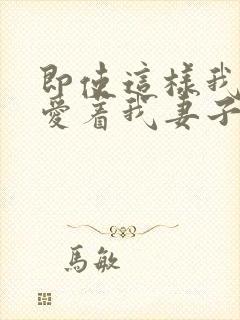 即使這樣我
愛着我妻子
馬敏